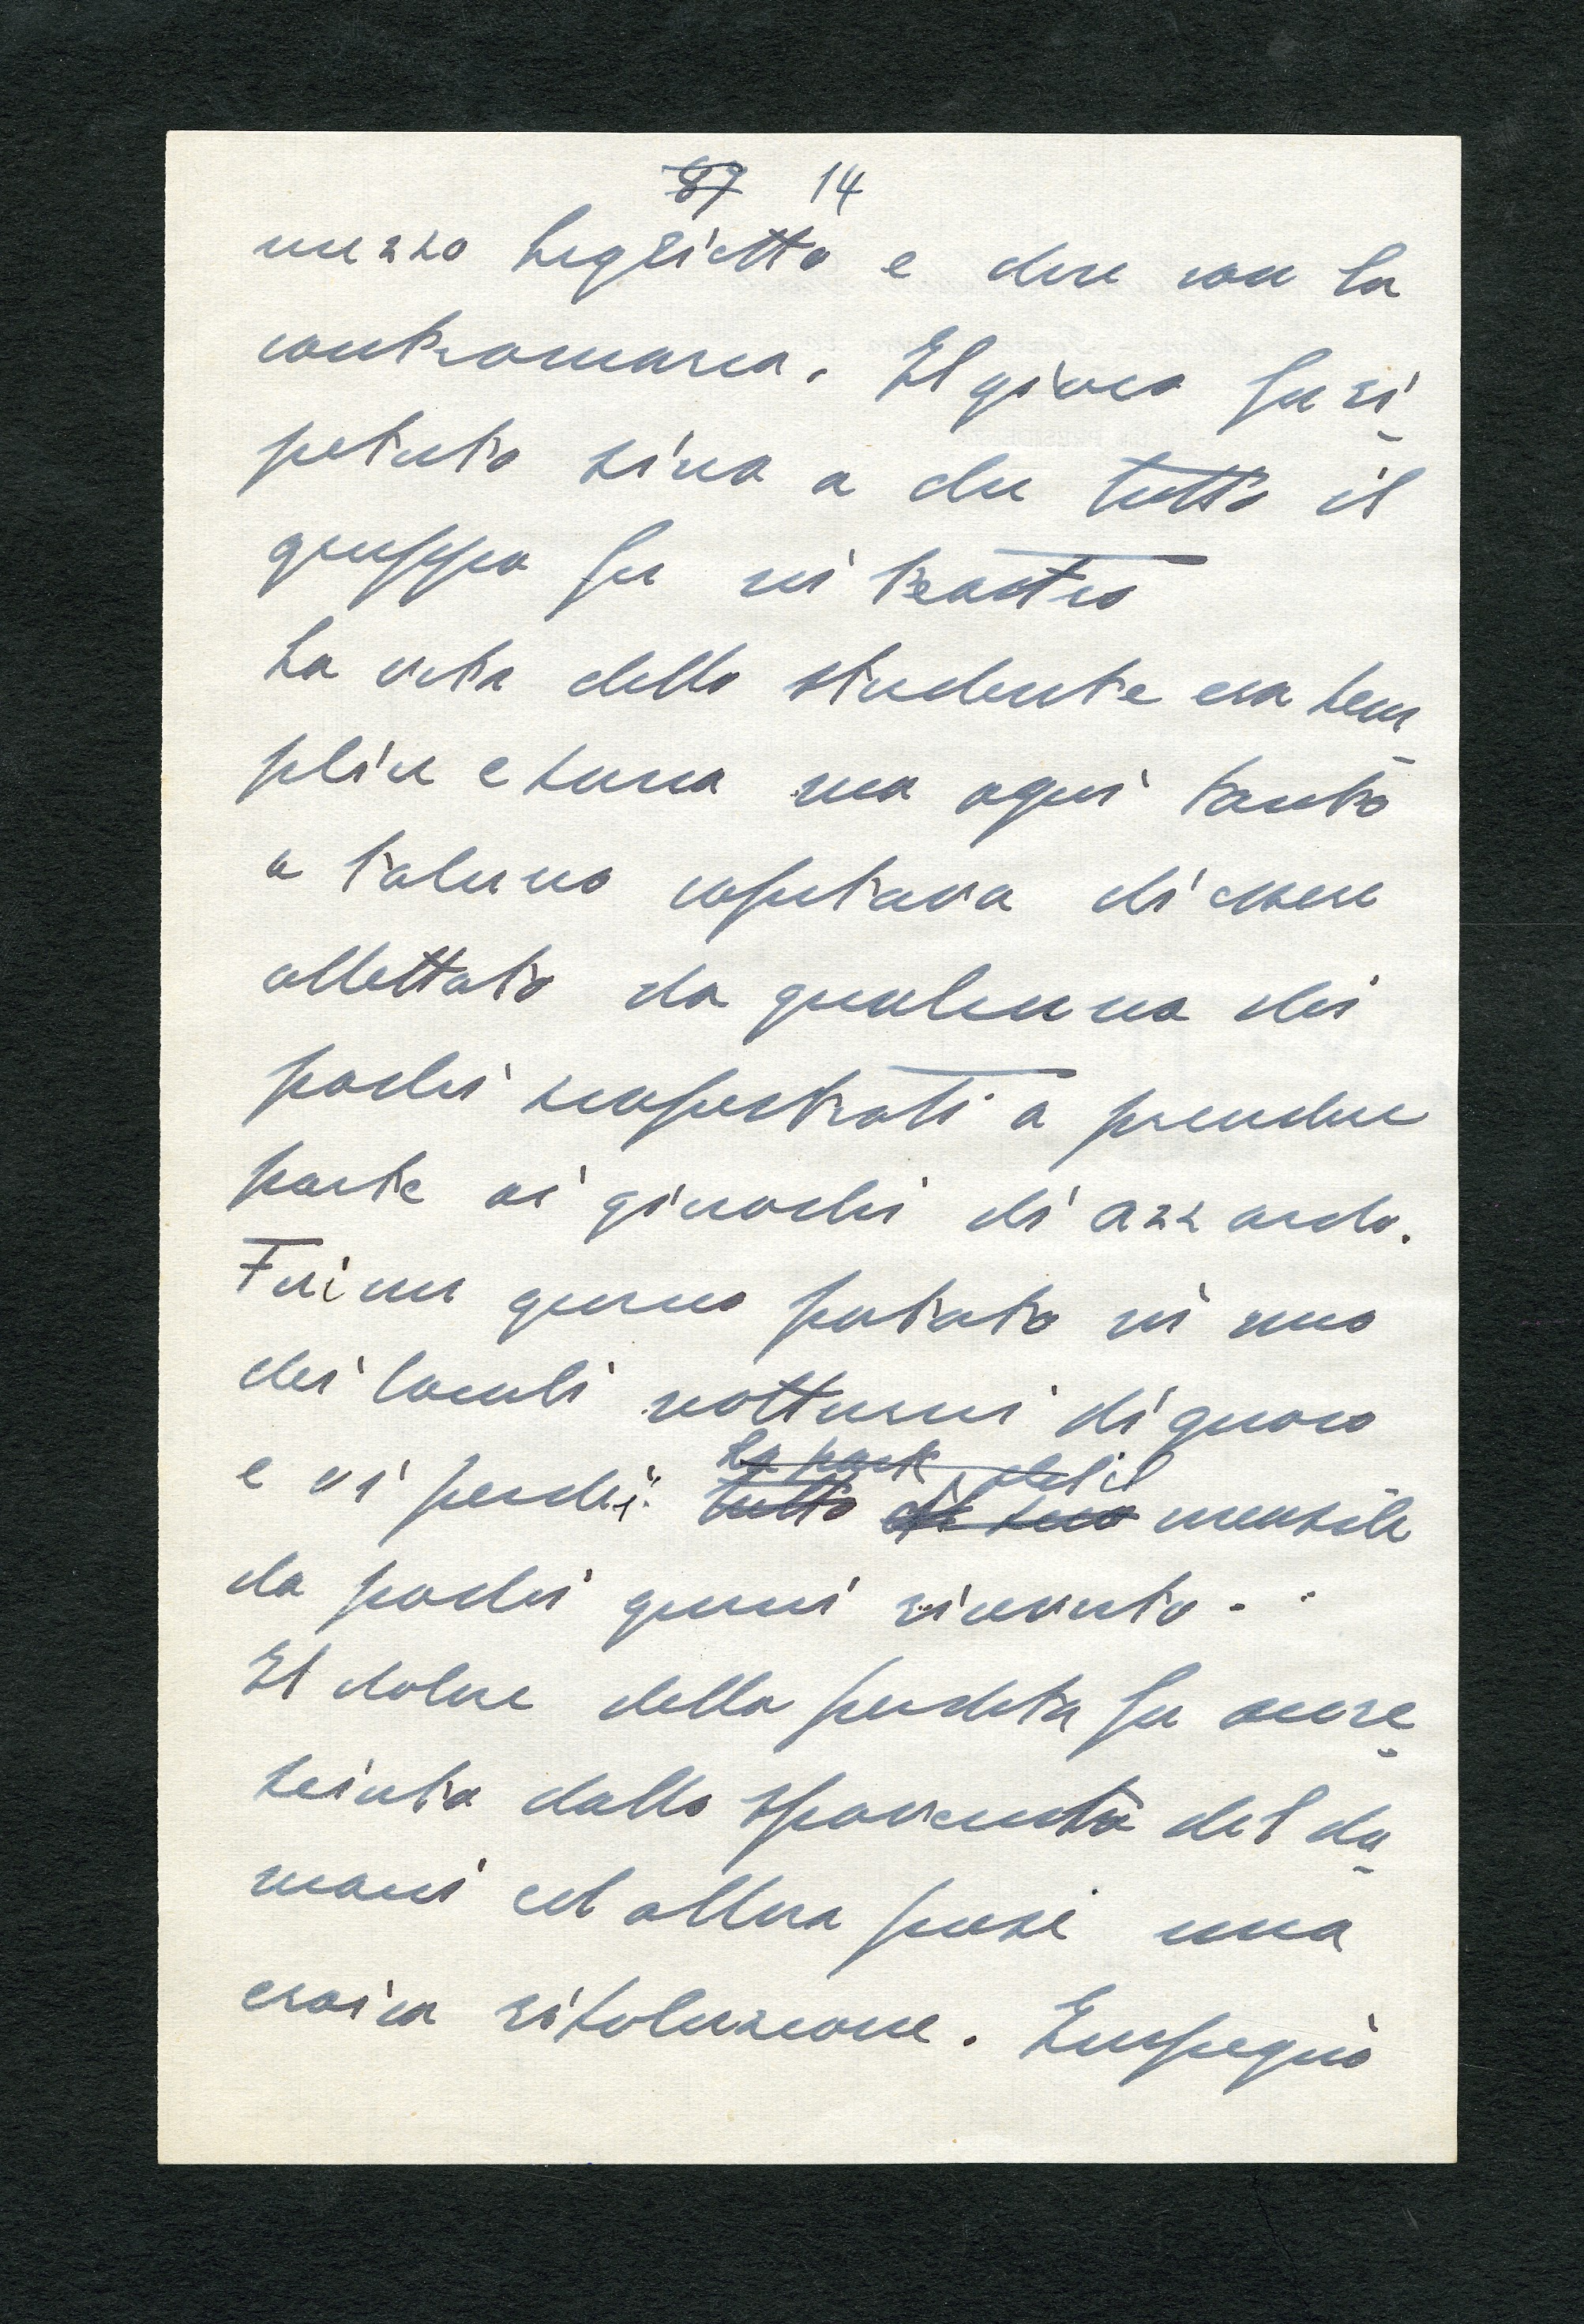 87 14
mezzo biglietto e due con la
contromarca. Il gioco fu ri-
petuto sino a che tutto il
gruppo fu in teatro
La vita dello studente era sem-
plice e sana ma ogni tanto
a taluno capitava di essere
allettato da qualcuno dei
pochi scapestrati a prendere
parte ai giuochi di azzardo.
Fui un giorno portato in uno
dei locali notturni di giuoco
e vi perdei tutto il mensile
la parte del
da pochi giorni ricevuto.
Il dolore della perdita fu accre-
sciuto dallo spavento del do-
mani ed allora presi una
eroica risoluzione. Impegnò